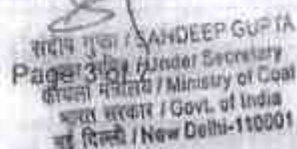 संदीप गुप्ता / SANDEEP GUPTA
Page 3 of 7 / Under Secretary
कोयला मंत्रालय / Ministry of Coal
भारत सरकार / Govt. of India
नई दिल्ली / New Delhi-110001